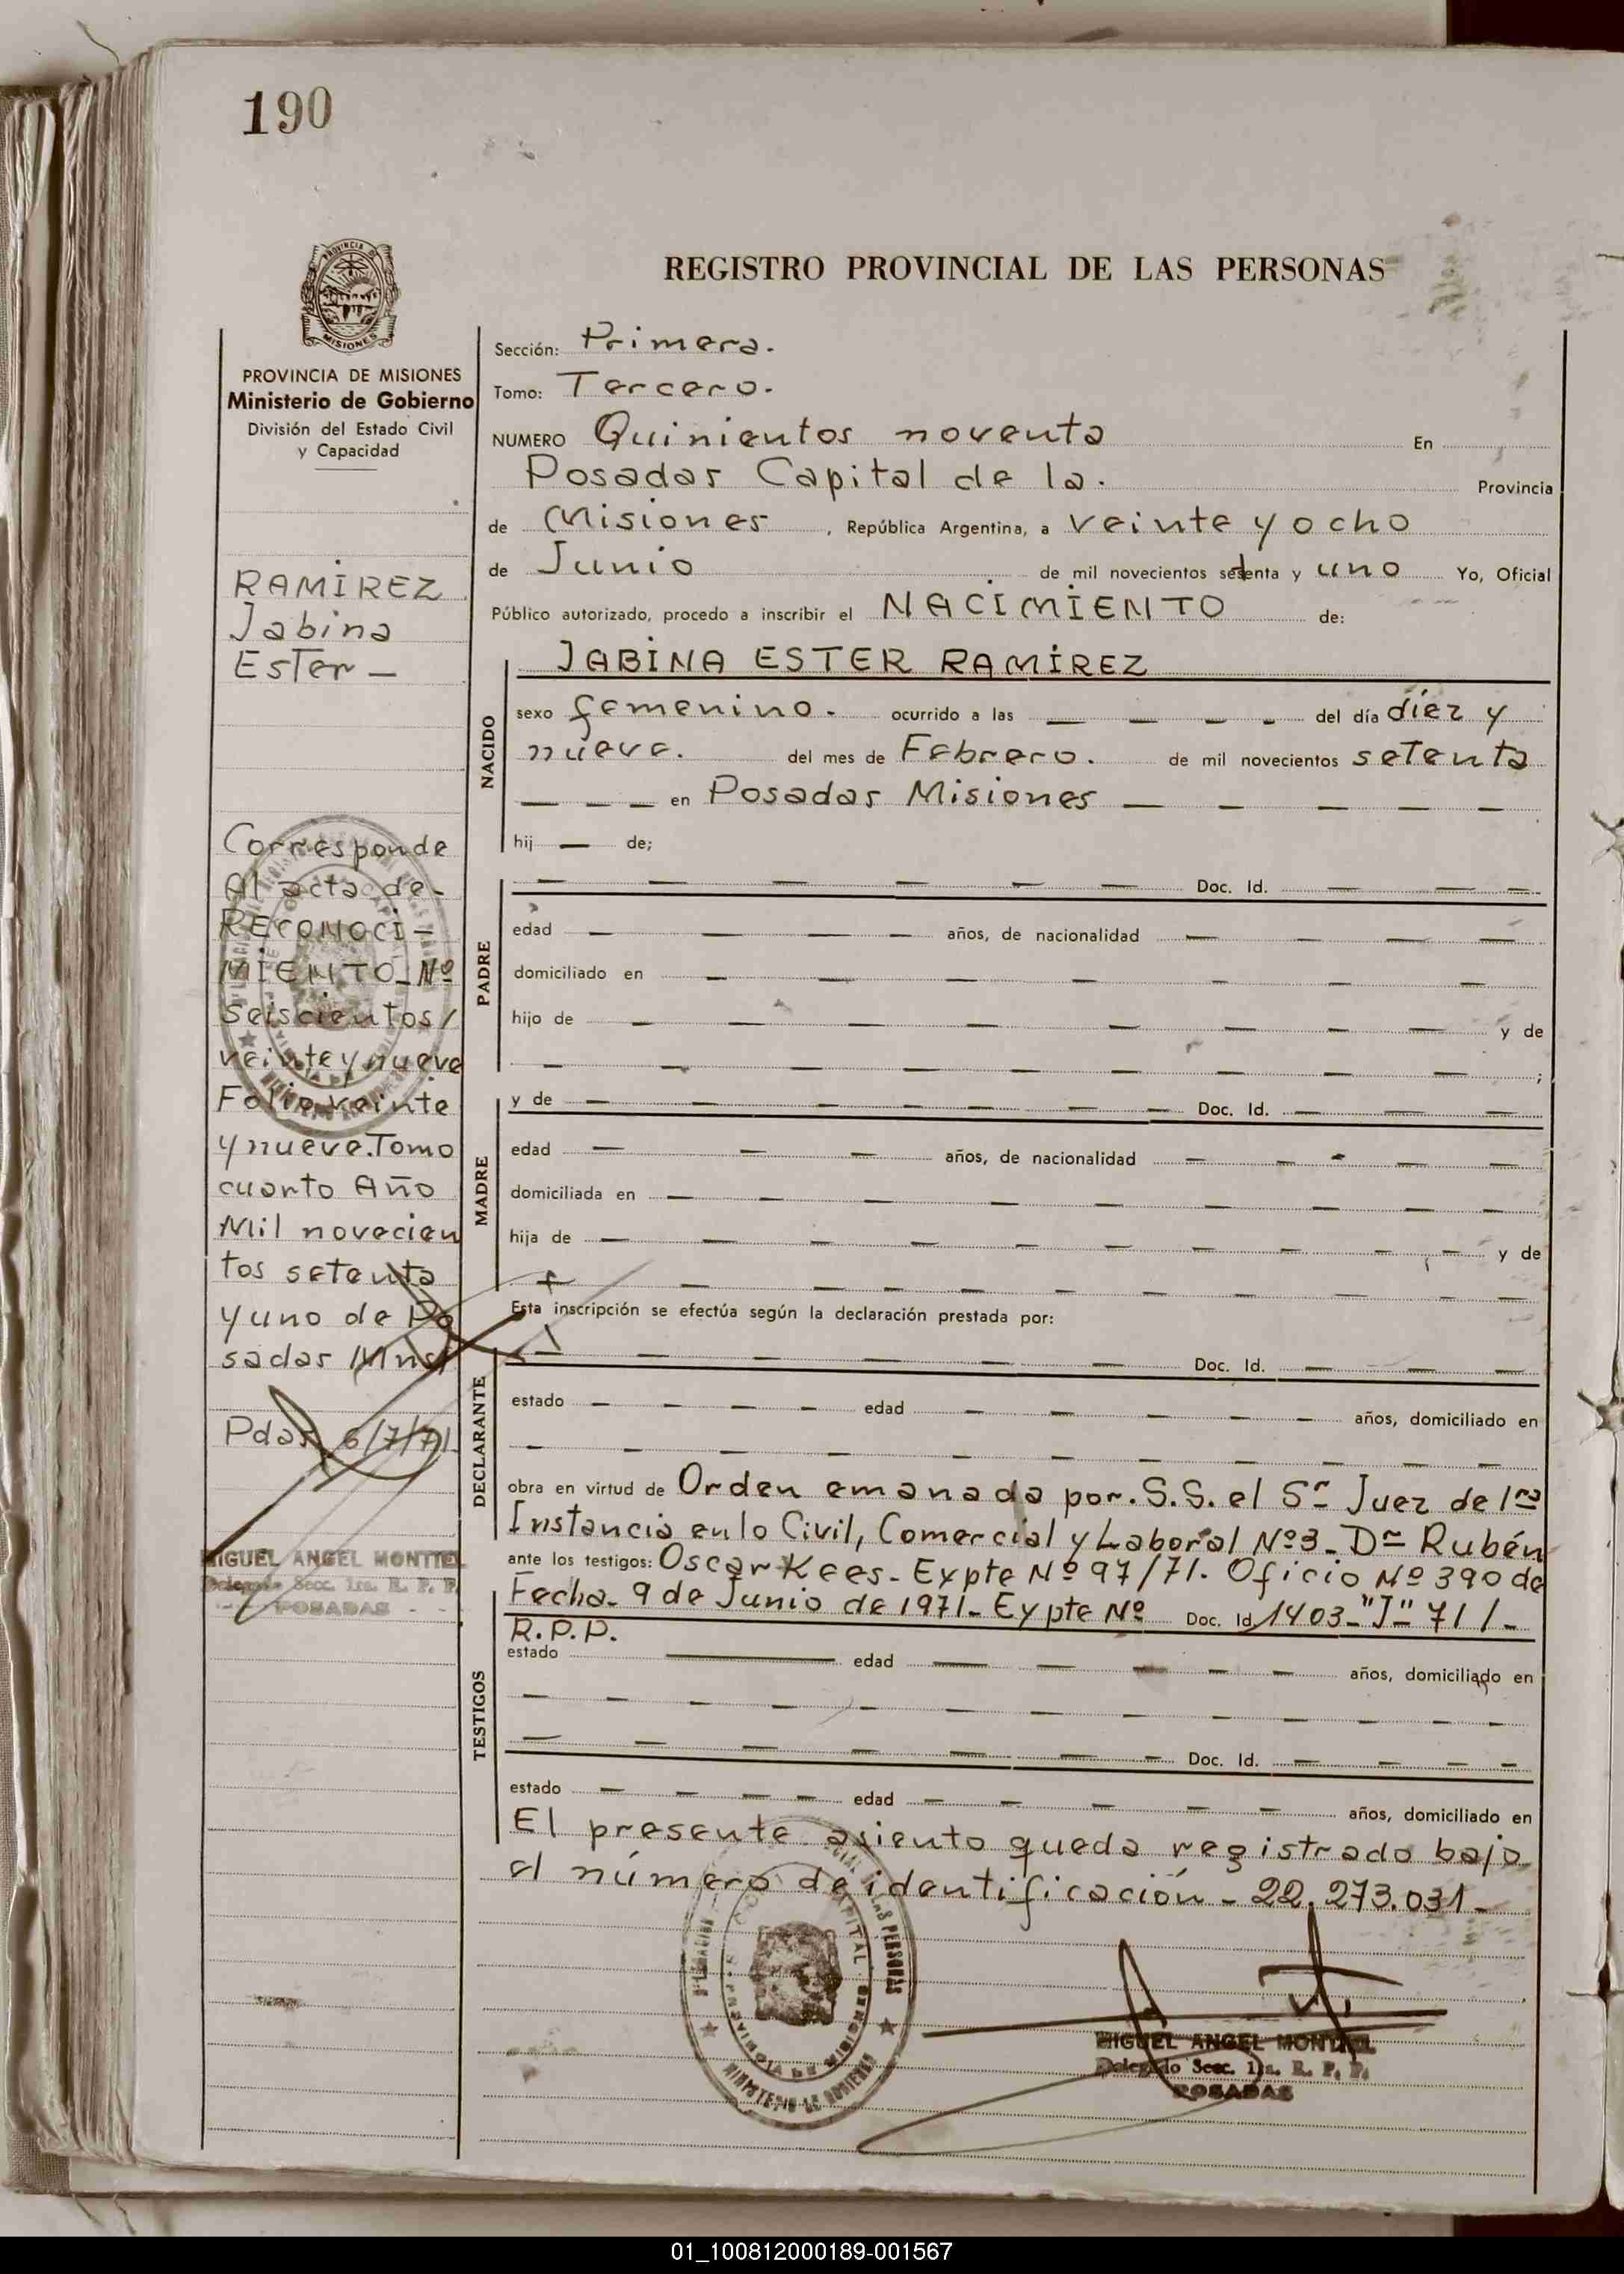 190
PROVINCIA DE
MISIONES
REGISTRO PROVINCIAL DE LAS PERSONAS
PROVINCIA DE MISIONES
Ministerio de Gobierno
División del Estado Civil
y Capacidad
RAMIREZ
Jabina
Ester —
Corresponde
Al acta de-
RECONOCI-
MIENTO_Nº
Seiscientos/
veinte y nueve
Folio veinte
y nueve. Tomo
cuarto Año
Mil novecien
tos setenta
y uno de Po
sadas Mns/
Pdas, 6/7/71
MIGUEL ANGEL MONTIEL
Delegado Secc. 1ra. R. P. P.
POSADAS
Sección: Primera.
Tomo: Tercero.
NUMERO Quinientos noventa En
Posadas Capital de la. Provincia
de Misiones, República Argentina, a veinte y ocho
de Junio de mil novecientos setenta y uno Yo, Oficial
Público autorizado, procedo a inscribir el NACIMIENTO de:
NACIDO
JABINA ESTER RAMIREZ
sexo femenino. ocurrido a las — — — — del día diez y
nueve. del mes de Febrero. de mil novecientos setenta
— — — en Posadas Misiones — — — — —
hij — de;
PADRE
— — — — — — Doc. Id. — — —
edad — — — — años, de nacionalidad — — — —
domiciliado en — — — — — —
hijo de — — — — — — — — y de
— — — — — — — — — ;
MADRE
y de — — — — — — Doc. Id. — —
edad — — — años, de nacionalidad — — — — —
domiciliada en — — — — — — — —
hija de — — — — — — — — — y de
— — — — — — — —
Esta inscripción se efectúa según la declaración prestada por:
DECLARANTE
— — — — — — Doc. Id. — — —
estado — — — — edad — — — — años, domiciliado en
— — — — — — — — —
obra en virtud de Orden emanada por. S.S. el Sr Juez de 1ra
Instancia en lo Civil, Comercial y Laboral Nº3_Dr Rubén
ante los testigos: Oscar Kees_ Expte Nº 97/71. Oficio Nº 390 de
Fecha_ 9 de Junio de 1971_ Expte Nº Doc. Id. 1403_"J"_71/_
TESTIGOS
R.P.P.
estado — edad — — — — — años, domiciliado en
— — — — — — — — —
— — — — — — Doc. Id. — — — —
estado — — — — edad — — — — — años, domiciliado en
El presente asiento queda registrado bajo
el número de identificación _ 22.273.031_
MIGUEL ANGEL MONTIEL
Delegado Secc. 1ra. R. P. P.
POSADAS
01_100812000189-001567